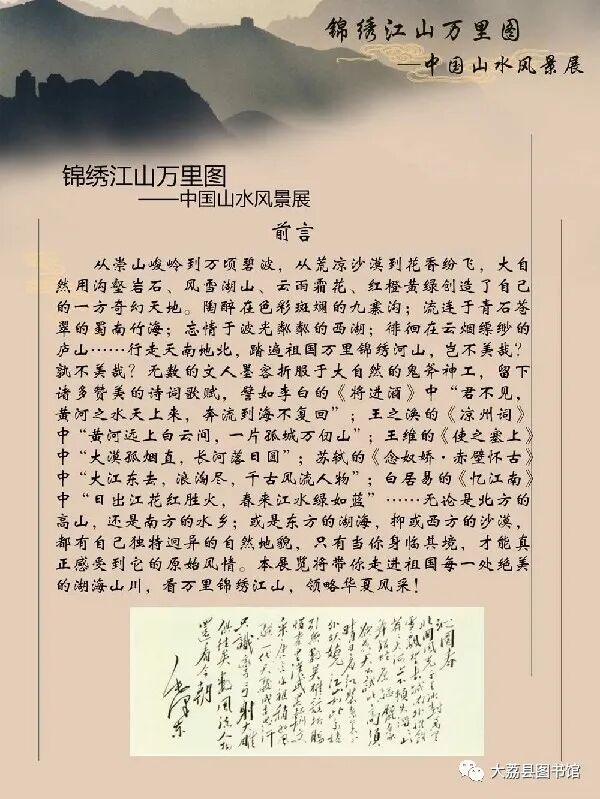 锦绣江山万里图
——中国山水风景展
锦绣江山万里图
——中国山水风景展
前言
从崇山峻岭到万顷碧波，从荒凉沙漠到花香纷飞，大自
然用沟壑岩石、风雪湖山、云雨霜花、红橙黄绿创造了自己
的一方奇幻天地。陶醉在色彩斑斓的九寨沟；流连于青石苍
翠的蜀南竹海；忘情于波光粼粼的西湖；徘徊在云烟缥缈的
庐山……行走天南地北，踏遍祖国万里锦绣河山，岂不美哉？
孰不美哉？无数的文人墨客折服于大自然的鬼斧神工，留下
诸多赞美的诗词歌赋，譬如李白的《将进酒》中“君不见，
黄河之水天上来，奔流到海不复回”；王之涣的《凉州词》
中“黄河远上白云间，一片孤城万仞山”；王维的《使之塞上》
中“大漠孤烟直，长河落日圆”；苏轼的《念奴娇·赤壁怀古》
中“大江东去，浪淘尽，千古风流人物”；白居易的《忆江南》
中“日出江花红胜火，春来江水绿如蓝”……无论是北方的
高山，还是南方的水乡；或是东方的湖海，抑或西方的沙漠，
都有自己独特迥异的自然地貌，只有当你身临其境，才能真
正感受到它的原始风情。本展览将带你走进祖国每一处绝美
的湖海山川，看万里锦绣江山，领略华夏风采！
沁园春
毛泽东
大荔县图书馆